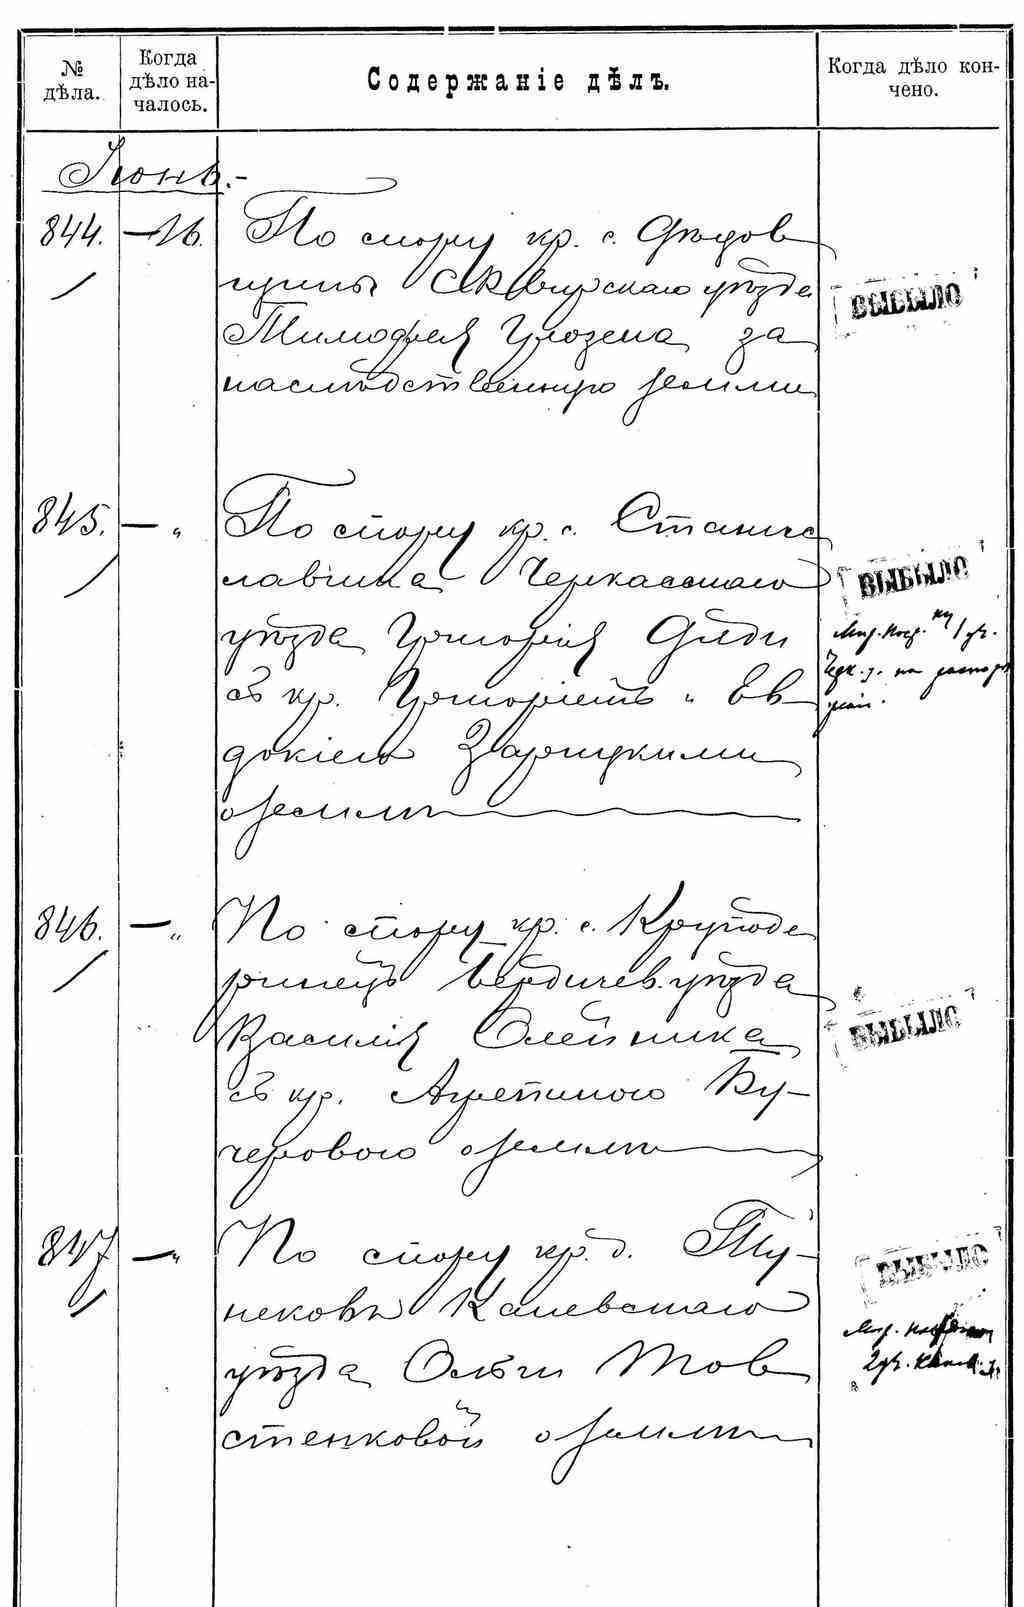 № дѣла.
Когда дѣло на-
чалось.
Содержаніе дѣлъ.
Когда дѣло кон-
чено.
Іюнь.-
844. — 16. По спору кр. с. Фѣдов
Сквирскаго уѣзда
Тимофея за
наслѣдственную землю
ВЫБЫЛО
845. — „ По спору кр. с. Станис
лавчика Черкасскаго
уѣзда Григорія
съ кр. Григоріемъ и Ев-
докіею Зарицкими
о землѣ
ВЫБЫЛО
Мир. Поср. 1 уч.
на распоря
846. — „ По спору кр. с. Круподе
ринецъ Бердичев. уѣзда
Василія Олейника
съ кр. Агрепиною Ку-
черовою о землѣ
ВЫБЫЛО
847 — „ По спору кр. д. Ту-
нековъ Каневскаго
уѣзда Ольги Тов
стенковой о землѣ
ВЫБЫЛО
Мир.
2 уч. Канев. у.